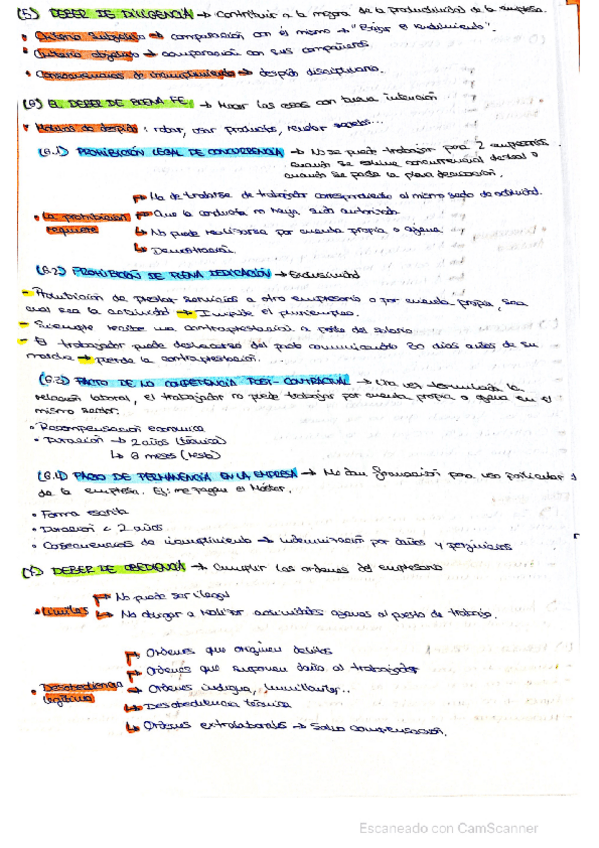 (5) DEBER DE DILIGENCIA → Contribuir a la mejora de la productividad de la empresa.
• Criterio subjetivo → comparación con él mismo → "Exigir el rendimiento".
• Criterio objetivo → comparación con sus compañeros.
• Consecuencias de incumplimiento → despido disciplinario.
(6) EL DEBER DE BUENA FE. → Hacer las cosas con buena intención
• Motivos de despido: robar, usar productos, revelar secretos...
(6.1) PROHIBICIÓN LEGAL DE CONCURRENCIA → No se puede trabajar para 2 empresarios
cuando se estime concurrencia desleal o
cuando se pacta la plena dedicación.
• La prohibición requiere
→ Ha de tratarse de trabajador correspondiente al mismo sector de actividad.
→ Que la conducta no haya sido autorizada
→ No puede realizarse por cuenta propia o ajena
→ Demostración
(6.2) PROHIBICIÓN DE PLENA DEDICACIÓN → Exclusividad
- Prohibición de prestar servicios a otro empresario o por cuenta propia, sea
cual sea la actividad → Impide el pluriempleo.
- Siempre recibe una contraprestación a parte del salario
- El trabajador puede deshacerse del pacto comunicando 30 días antes de su
marcha → pierde la contraprestación.
(6.3) PACTO DE NO COMPETENCIA POST-CONTRACTUAL → Una vez terminada la
relación laboral, el trabajador no puede trabajar por cuenta propia o ajena en el
mismo sector.
• Recompensación económica
• Duración → 2 años (técnico)
↳ 6 meses (resto)
(6.4) PACTO DE PERMANENCIA EN LA EMPRESA → Me dan formación para uso particular
de la empresa. Ej: me pagan el Máster.
• Forma escrita
• Duración < 2 años
• Cosecuencias de incumplimiento → indemnización por daños y perjuicios
(7) DEBER DE OBEDIENCIA → Cumplir las ordenes del empresario
• Límites
→ No puede ser ilegal
→ No obligar a realizar actividades ajenas al puesto de trabajo.
• Desobediencia legítima
→ Ordenes que originen delitos
→ Ordenes que suponen daño al trabajador
→ Ordenes indigna, humillante..
→ Desobediencia técnica
→ Ordenes extralaborales → Salvo compensación.
Escaneado con CamScanner